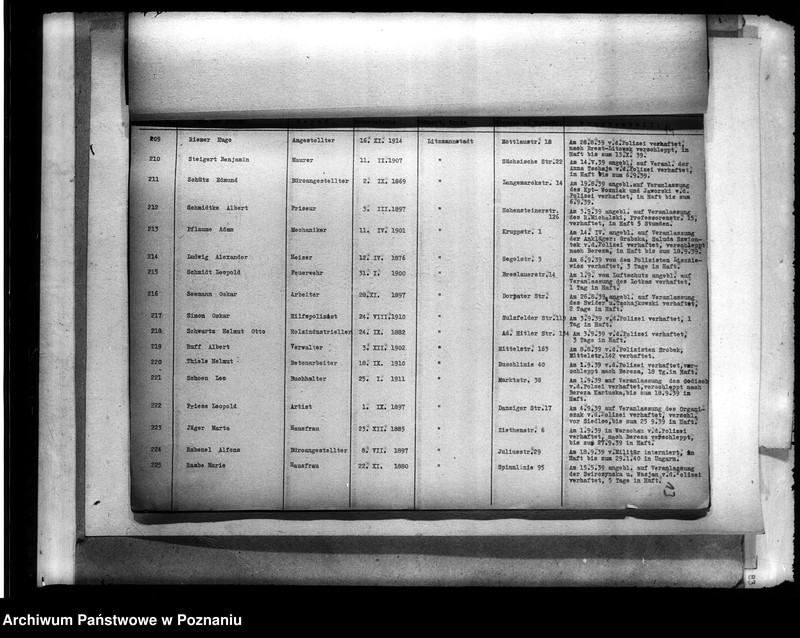 209 Riemer Hugo Angestellter 16. XI. 1914 Litzmannstadt Mottlaustr. 18 Am 28.8.39 v.d.Polizei verhaftet,
nach Brest-Litowsk verschleppt, in
Haft bis zum 15.IX. 39.
210 Steigert Benjamin Maurer 11. II.1907 " Sächsische Str.22 Am 14.V.39 angebl. auf Veranl. der
Anna Tschaja v.d.Polizei verhaftet,
in Haft bis zum 6.9.39.
211 Schütz Edmund Büroangestellter 2. IX. 1869 " Langemarckstr. 14 Am 19.8.39 angebl.auf Veranlassung
des Kpt- Wozniak und Jaworski v.d.
Polizei verhaftet, in Haft bis zum
6.9.39.
212 Schmidtke Albert Friseur 3. III.1897 " Hohensteinerstr. 126 Am 3.9.39 angebl. auf Veranlassung
des R.Michalski, Professorenstr. 15,
verhaftet, in Haft 5 Stunden.
213 Pflaume Adam Mechaniker 11. IV. 1901 " Kruppstr. 1 Am 14. IV. angebl. auf Veranlassung
der Ankläger: Grabska, Saluda Szwion-
tek v.d.Polizei verhaftet, verschleppt
nach Bereza, in Haft bis zum 18.9.39.
214 Ludwig Alexander Heizer 12. IV. 1876 " Segelstr. 3 Am 6.9.39 von dem Polizisten
verhaftet, 3 Tage in Haft.
215 Schmidt Leopold Feuerwehr 31. I. 1900 " Breslauerstr.14 Am 1.9. vom Luftschutz angebl. auf
Veranlassung des Lotkas verhaftet,
1 Tag in Haft.
216 Seemann Oskar Arbeiter 28.XI. 1897 " Dorpater Str. Am 26.8.39 angebl. auf Veranlassung
des Swider u.Tschajkowski verhaftet,
2 Tage in Haft.
217 Simon Oskar Hilfspolizist 24. VIII.1910 " Sulzfelder Str.119 Am 3.9.39 v.d.Polizei verhaftet, 1
Tag in Haft.
218 Schwartz Helmut Otto Holzindustrieller 24. IX. 1882 " Ad. Hitler Str. 134 Am 3.9.39 v.d.Polizei verhaftet,
3 Tage in Haft.
219 Ruff Albert Verwalter 3. XII. 1902 " Mittelstr. 163 Am 8.8.39 v.d.Polizisten Brobek,
Mittelstr.142 verhaftet.
220 Thiele Helmut Betonarbeiter 18. IX. 1910 " Buschlinie 40 Am 1.9.39 v.d.Polizei verhaftet,ver-
schleppt nach Bereza, 18 Tg.in Haft.
221 Schoen Leo Buchhalter 25. I. 1911 " Marktstr. 38 Am 1.9.39 auf Veranlassung des
v.d.Polizei verhaftet,verschleppt nach
Bereza Kartuska,bis zum 18.9.39 in
Haft.
222 Friess Leopold Artist 1. IX. 1897 " Danziger Str.17 Am 4.9.39 auf Veranlassung des Organi-
szak v.d.Polizei verhaftet, verschl.
vor Siedlce,bis zum 25 9.39 in Haft.
223 Jäger Marta Hausfrau 23. XII. 1885 " Ziethenstr. 6 Am 1.9.39 in Warschau v.d.Polizei
verhaftet, nach Bereza verschleppt,
bis zum 27.9.39 in Haft.
224 Habenel Alfons Büroangestellter 8. VII. 1897 " Juliusstr.29 Am 18.9.39 v.Militär interniert, in
Haft bis zum 29.1.40 in Ungarn.
225 Raabe Marie Hausfrau 22. XI. 1880 " Spinnlinie 95 Am 15.5.39 angebl. auf Veranlassung
der Swirozynska u. Wasjan v.d.Polizei
verhaftet, 5 Tage in Haft.
13
Archiwum Państwowe w Poznaniu